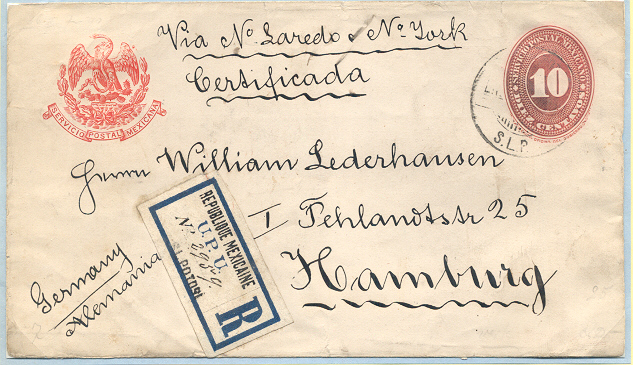 Via No. Laredo & No. York
Certificada
SERVICIO POSTAL MEXICANA
SERVICIO POSTAL MEXICANO
10
DIEZ CENTAVOS
S.L.P.
Herrn William Lederhausen
I Fehlandtstr 25
Hamburg
Germany
Alemania
REPUBLIQUE MEXICAINE
U. P. U.
S.L. POTOSI
R